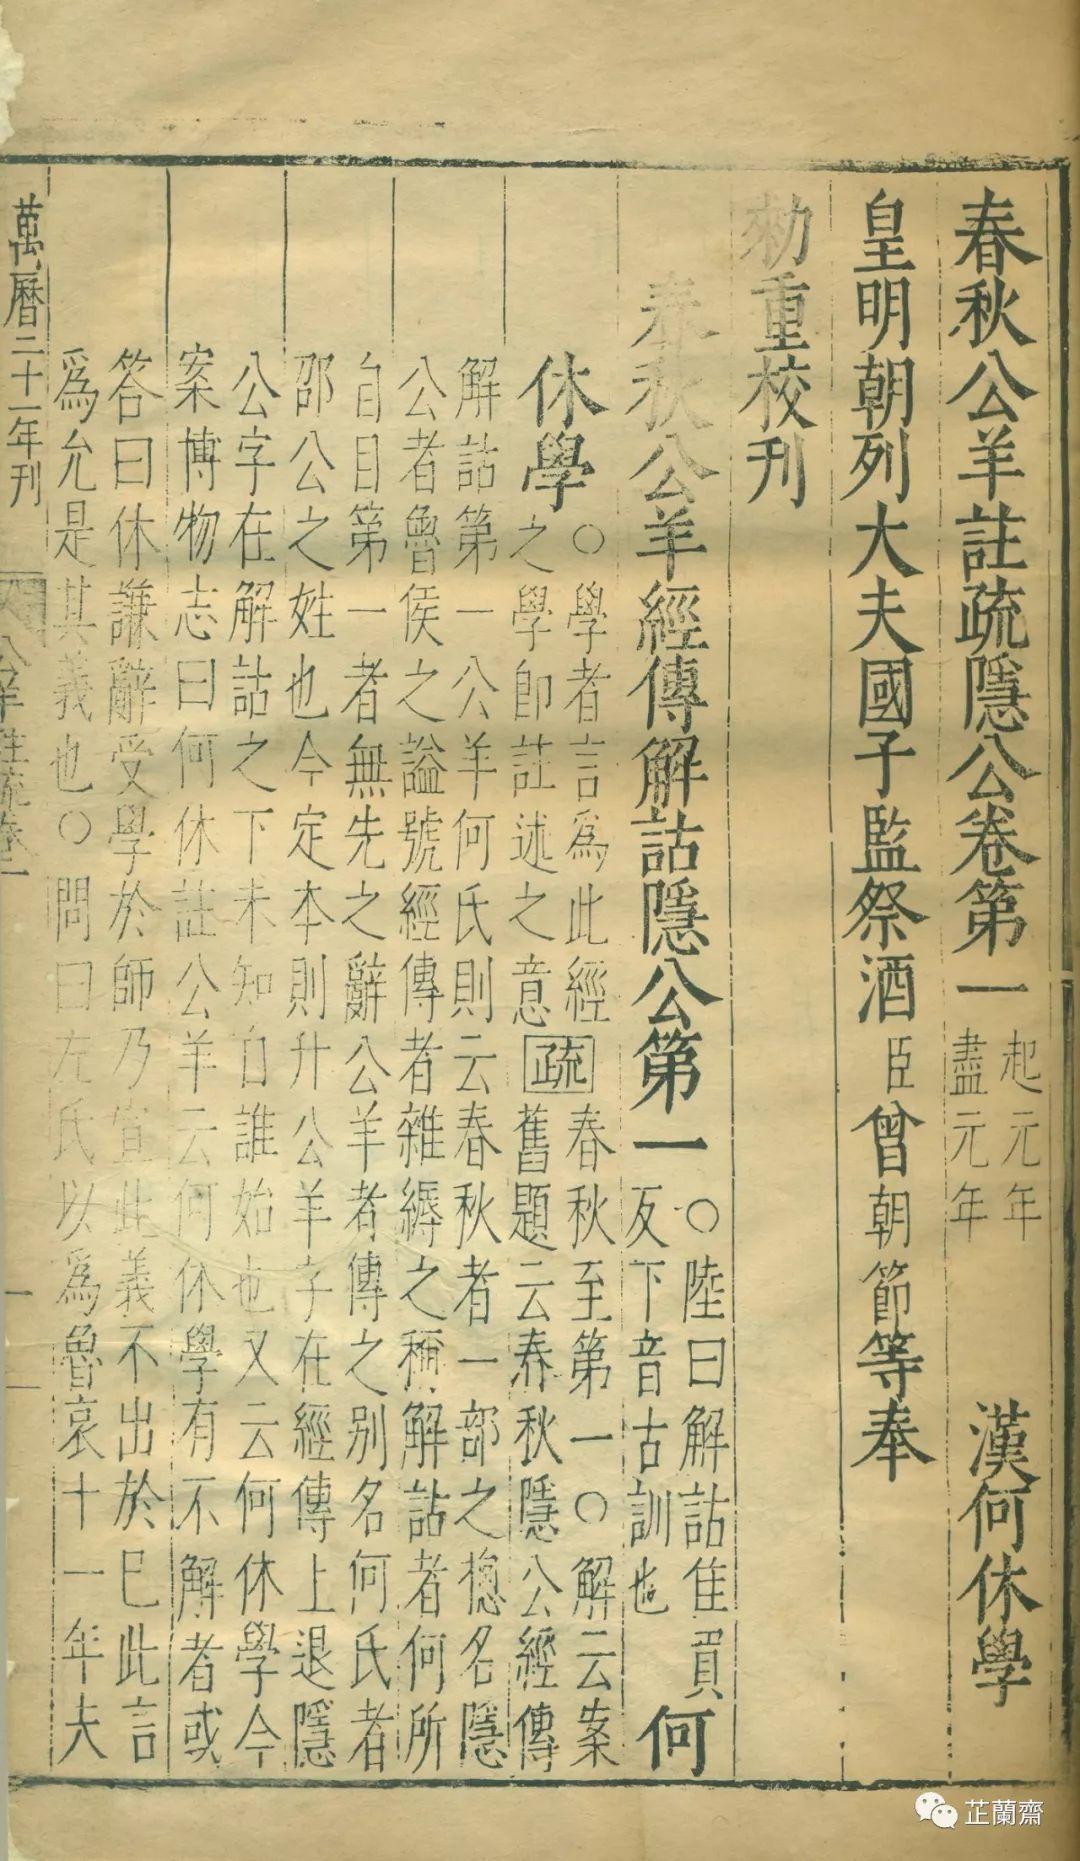 春秋公羊註疏隱公卷第一 起元年盡元年 漢何休學
皇明朝列大夫國子監祭酒臣曾朝節等奉
勑重校刊
春秋公羊經傳解詁隱公第一 ○陸曰解詁隹買
反下音古訓也 何
休學 ○學者言爲此經
之學卽註述之意 疏 春秋至第一○解云案
舊題云春秋隱公經傳
解詁第一公羊何氏則云春秋者一部之揔名隱
公者魯侯之謚號經傳者雜縟之稱解詁者何所
自目第一者無先之辭公羊者傳之别名何氏者
邵公之姓也今定本則升公羊字在經傳上退隱
公字在解詁之下未知自誰始也又云何休學今
案博物志曰何休註公羊云何休學有不解者或
答曰休謙辭受學於師乃宣此義不出於巳此言
爲允是其義也○問曰左氏以爲魯哀十一年夫
萬曆二十一年刊 公羊註疏卷一 一
芷蘭齋